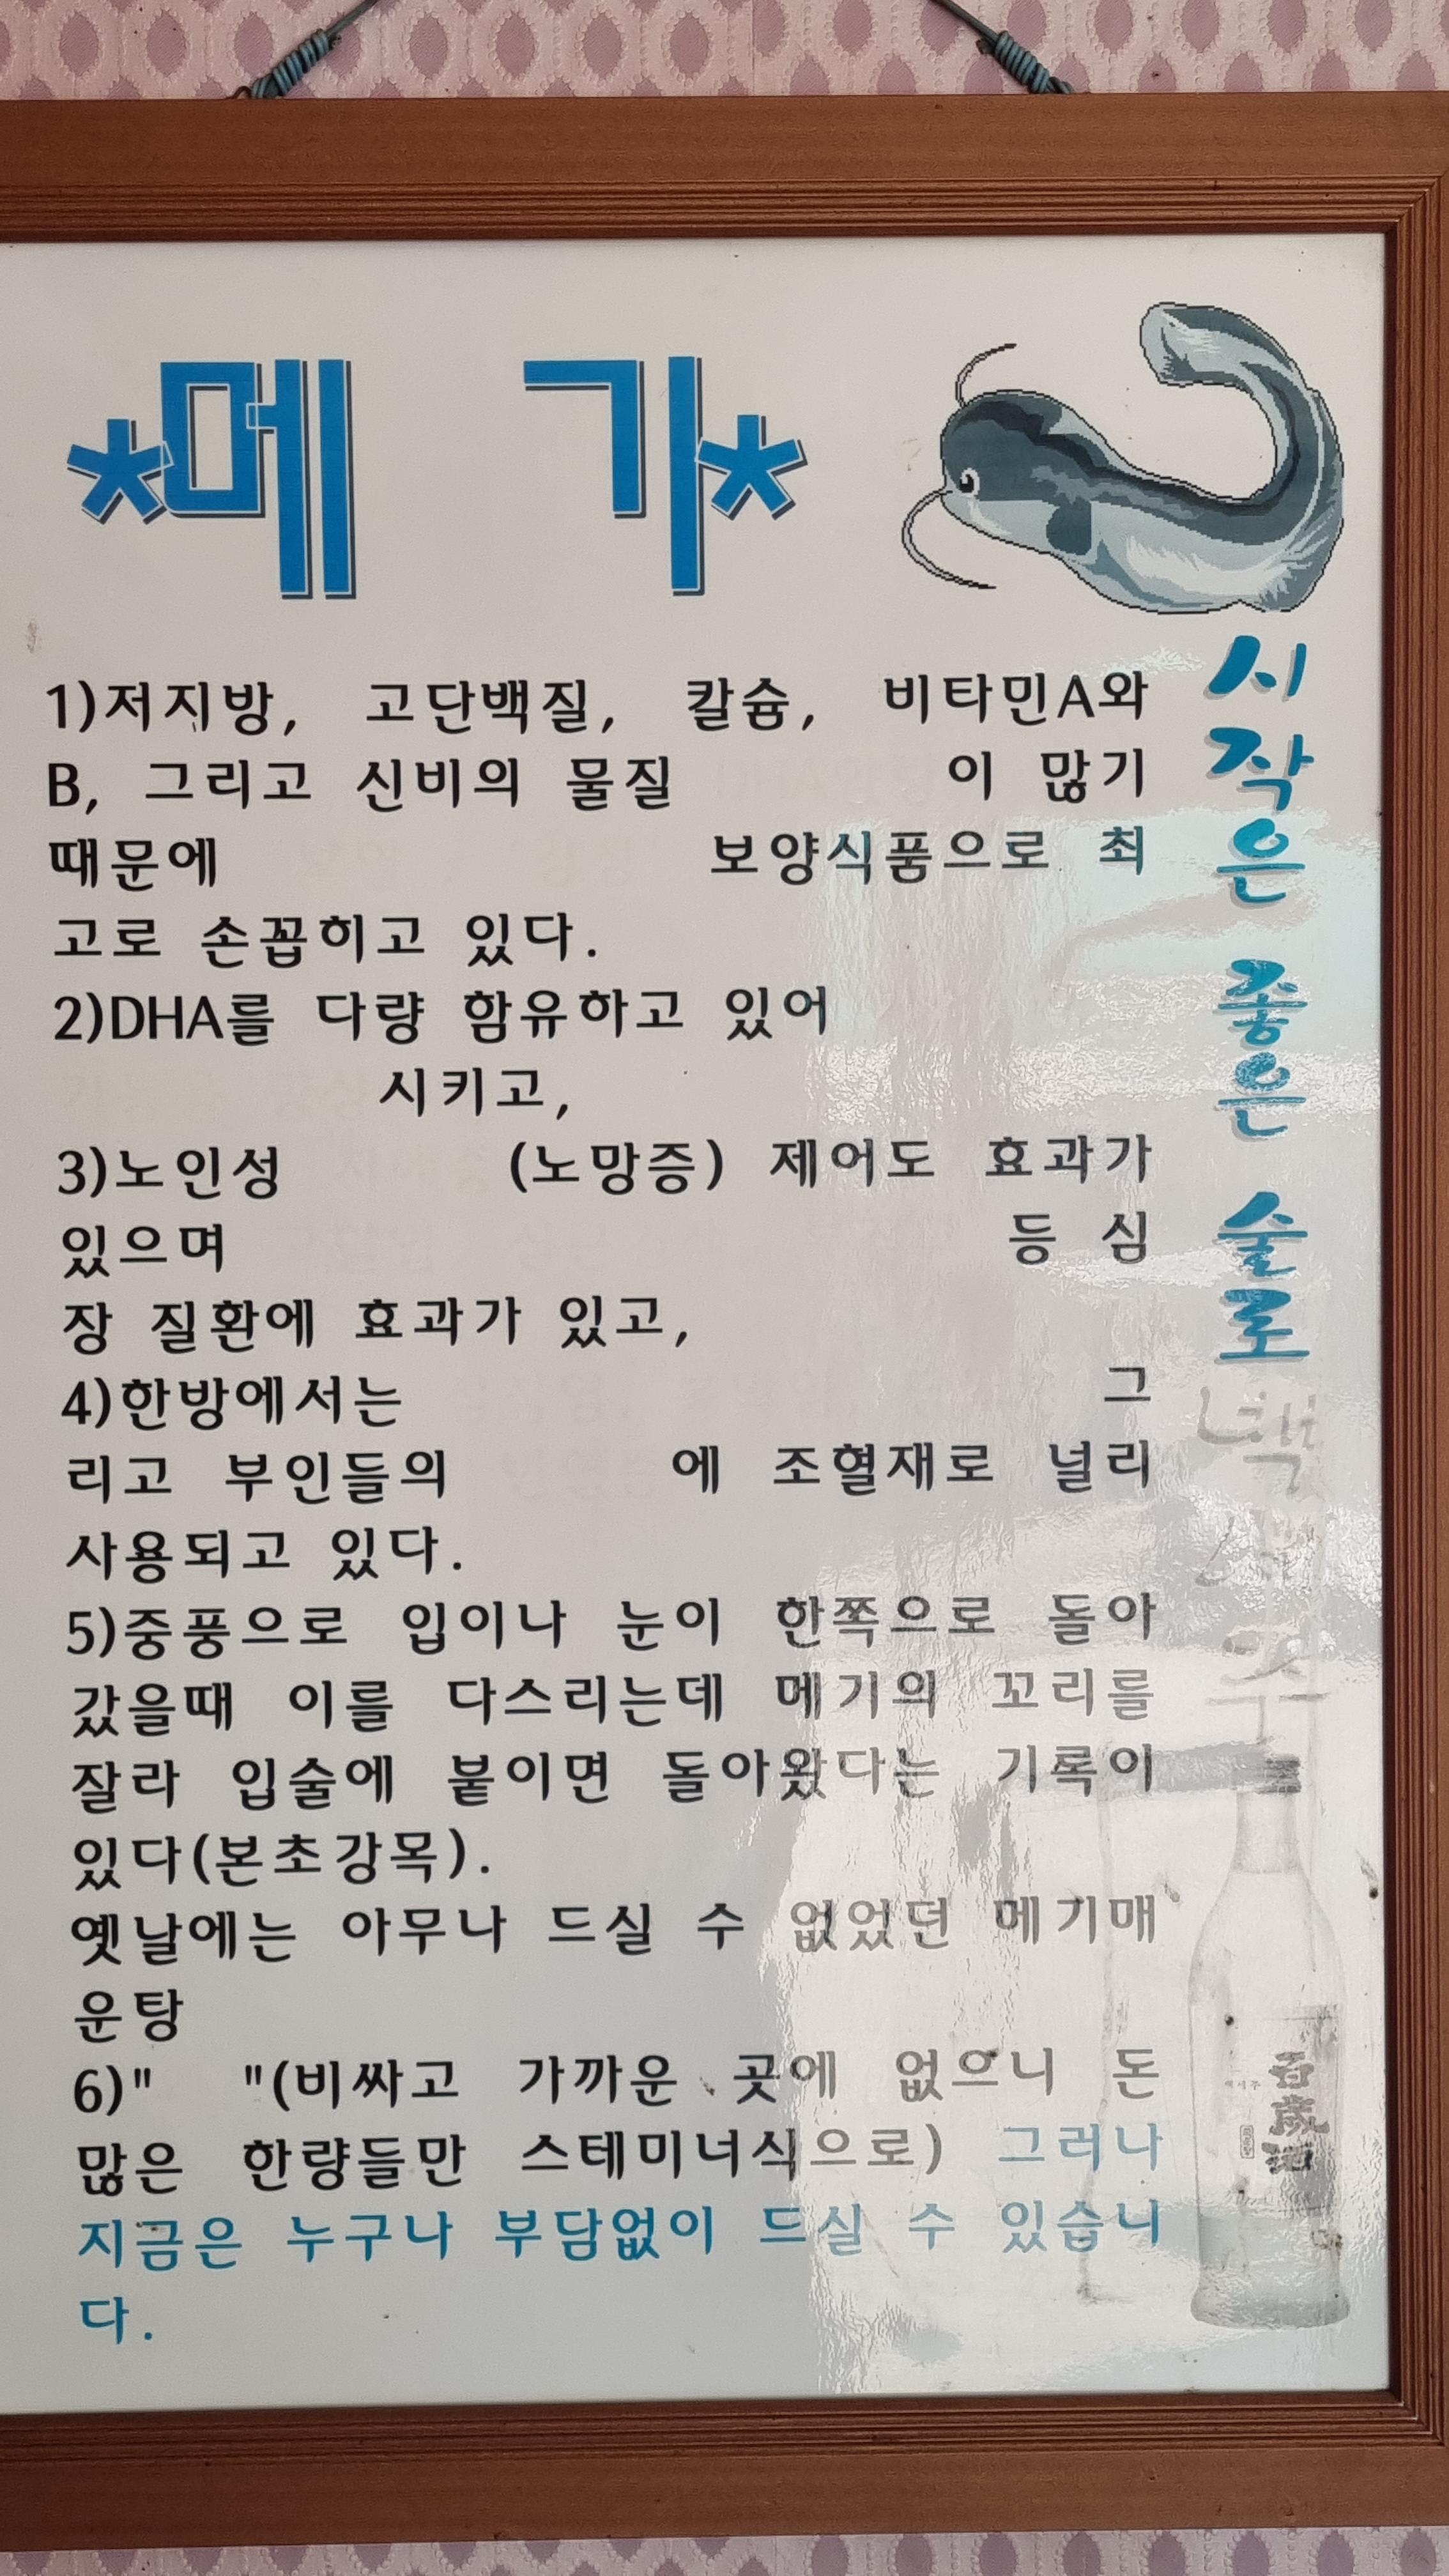 *메 기*
1)저지방, 고단백질, 칼슘, 비타민A와
B, 그리고 신비의 물질 이 많기
때문에 보양식품으로 최
고로 손꼽히고 있다.
2)DHA를 다량 함유하고 있어
시키고,
3)노인성 (노망증) 제어도 효과가
있으며 등 심
장 질환에 효과가 있고,
4)한방에서는 그
리고 부인들의 에 조혈재로 널리
사용되고 있다.
5)중풍으로 입이나 눈이 한쪽으로 돌아
갔을때 이를 다스리는데 메기의 꼬리를
잘라 입술에 붙이면 돌아왔다는 기록이
있다(본초강목).
옛날에는 아무나 드실 수 없었던 메기매
운탕
6)" "(비싸고 가까운 곳에 없으니 돈
많은 한량들만 스테미너식으로) 그러나
지금은 누구나 부담없이 드실 수 있습니
다.
시작은 좋은 술로
백세주
百歲酒